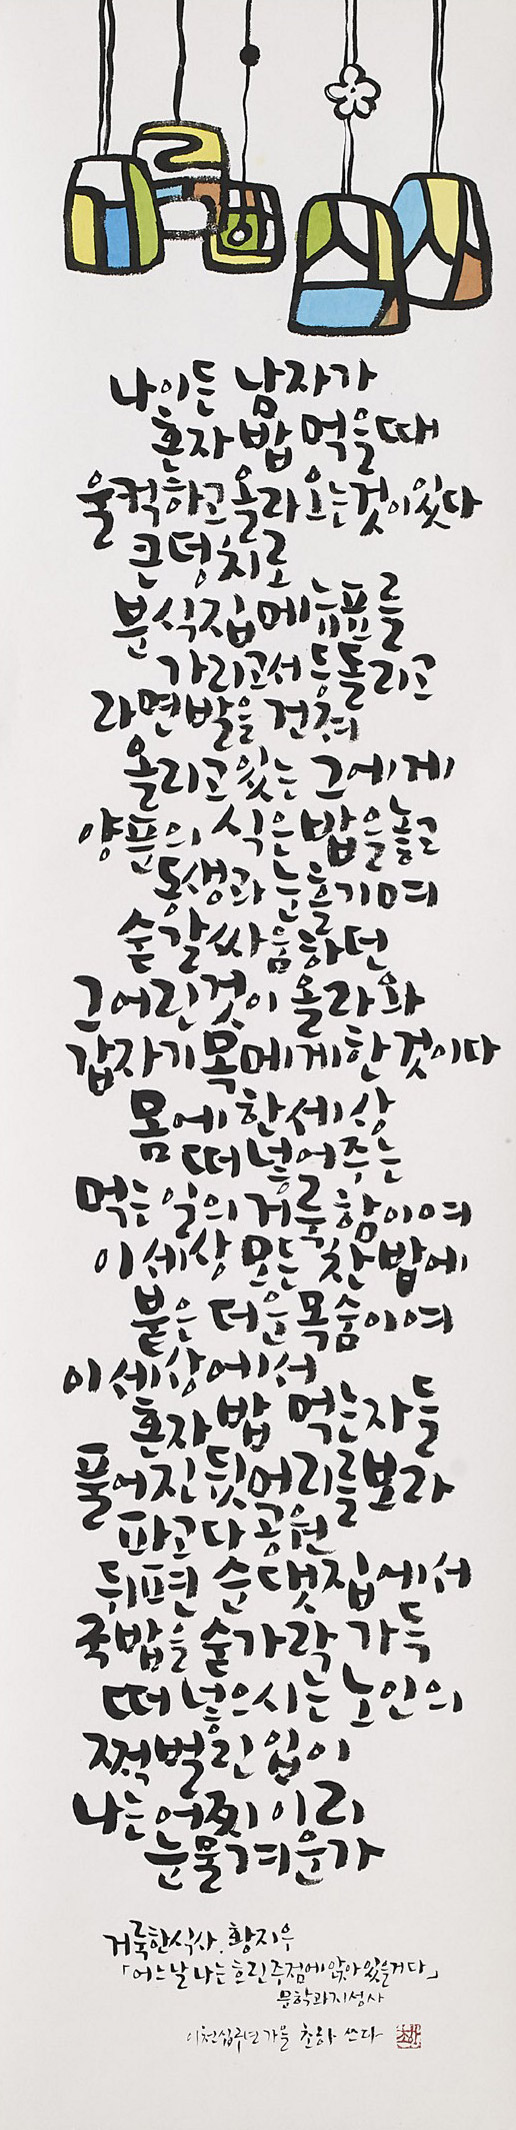 나이든 남자가
혼자 밥 먹을때
울컥하고 올라오는것이있다
큰덩치로
분식집메뉴표를
가리고서 등돌리고
라면발을 건져
올리고있는 그에게
양푼의 식은밥을놓고
동생과 눈흘기며
숟갈싸움하던
그어린것이 올라와
갑자기목메게한것이다
몸에한세상
떠넣어주는
먹는일의 거룩함이여
이세상 모든 찬밥에
붙은 더운목숨이여
이세상에서
혼자 밥 먹는자들
풀어진 뒷머리를보라
파고다공원
뒤편 순댓집에서
국밥을 숟가락 가득
떠넣으시는 노인의
쩍벌린입이
나는어찌 이리
눈물겨운가
거룩한식사. 황지우
「어느날 나는 흐린주점에앉아있을거다」
문학과지성사
이천십구년가을 초하 쓰다